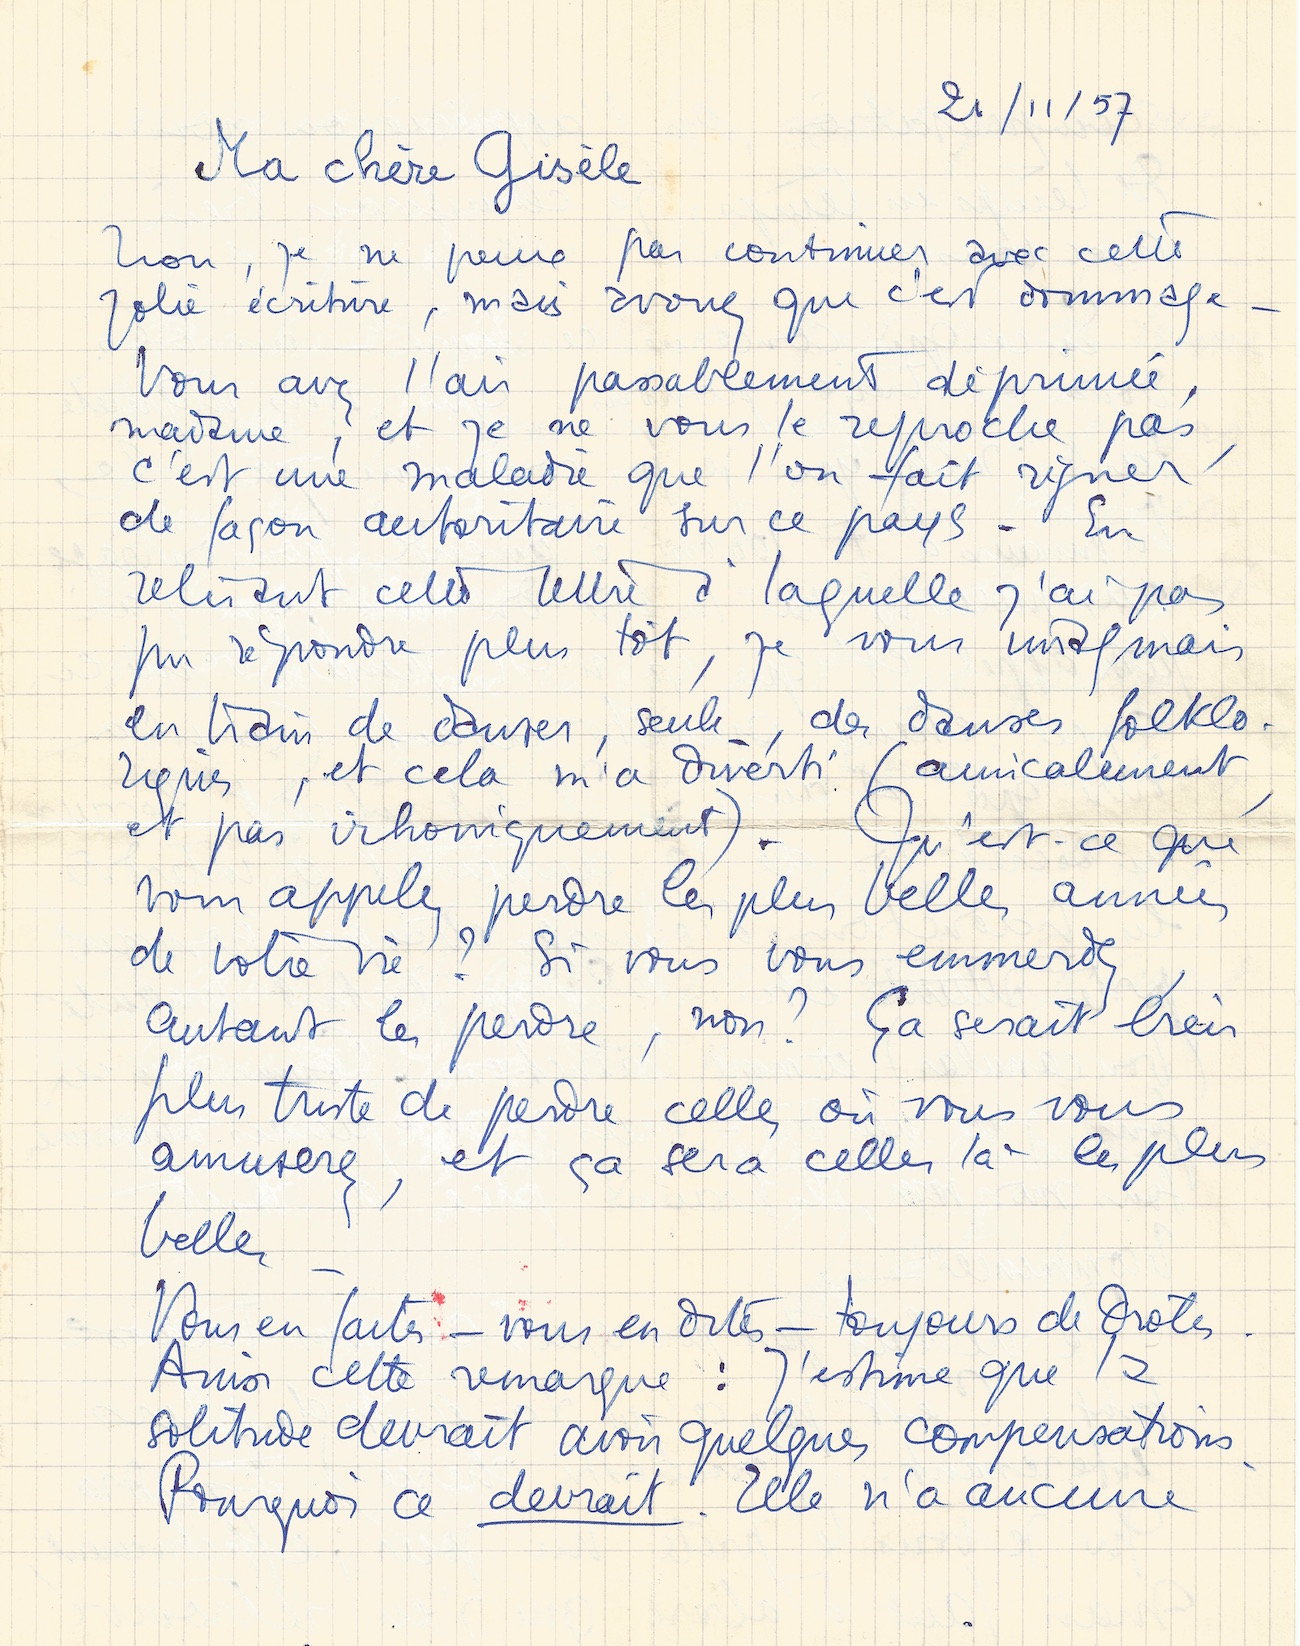 21/11/57
Ma chère Gisèle
Non, je ne peux pas continuer avec cette
jolie écriture, mais avouez que c'est dommage -
Vous avez l'air passablement déprimée,
madame, et je ne vous le reproche pas,
c'est une maladie que l'on fait régner
de façon autoritaire sur ce pays - En
relisant cette lettre à laquelle j'ai pas
pu répondre plus tôt, je vous imaginais
en train de danser, seule, des danses folklo-
riques, et cela m'a diverti (amicalement,
et pas irhoniquement). Qu'est-ce que
vous appelez perdre les plus belles années
de votre vie ? Si vous vous emmerdez,
autant les perdre, non ? Ça serait bien
plus triste de perdre celles où vous vous
amuserez, et ça sera celles là les plus
belles -
Vous en faites - vous en dites - toujours de drôles.
Ainsi cette remarque : J'estime que la
solitude devrait avoir quelques compensations.
Pourquoi ce devrait. Elle n'a aucune